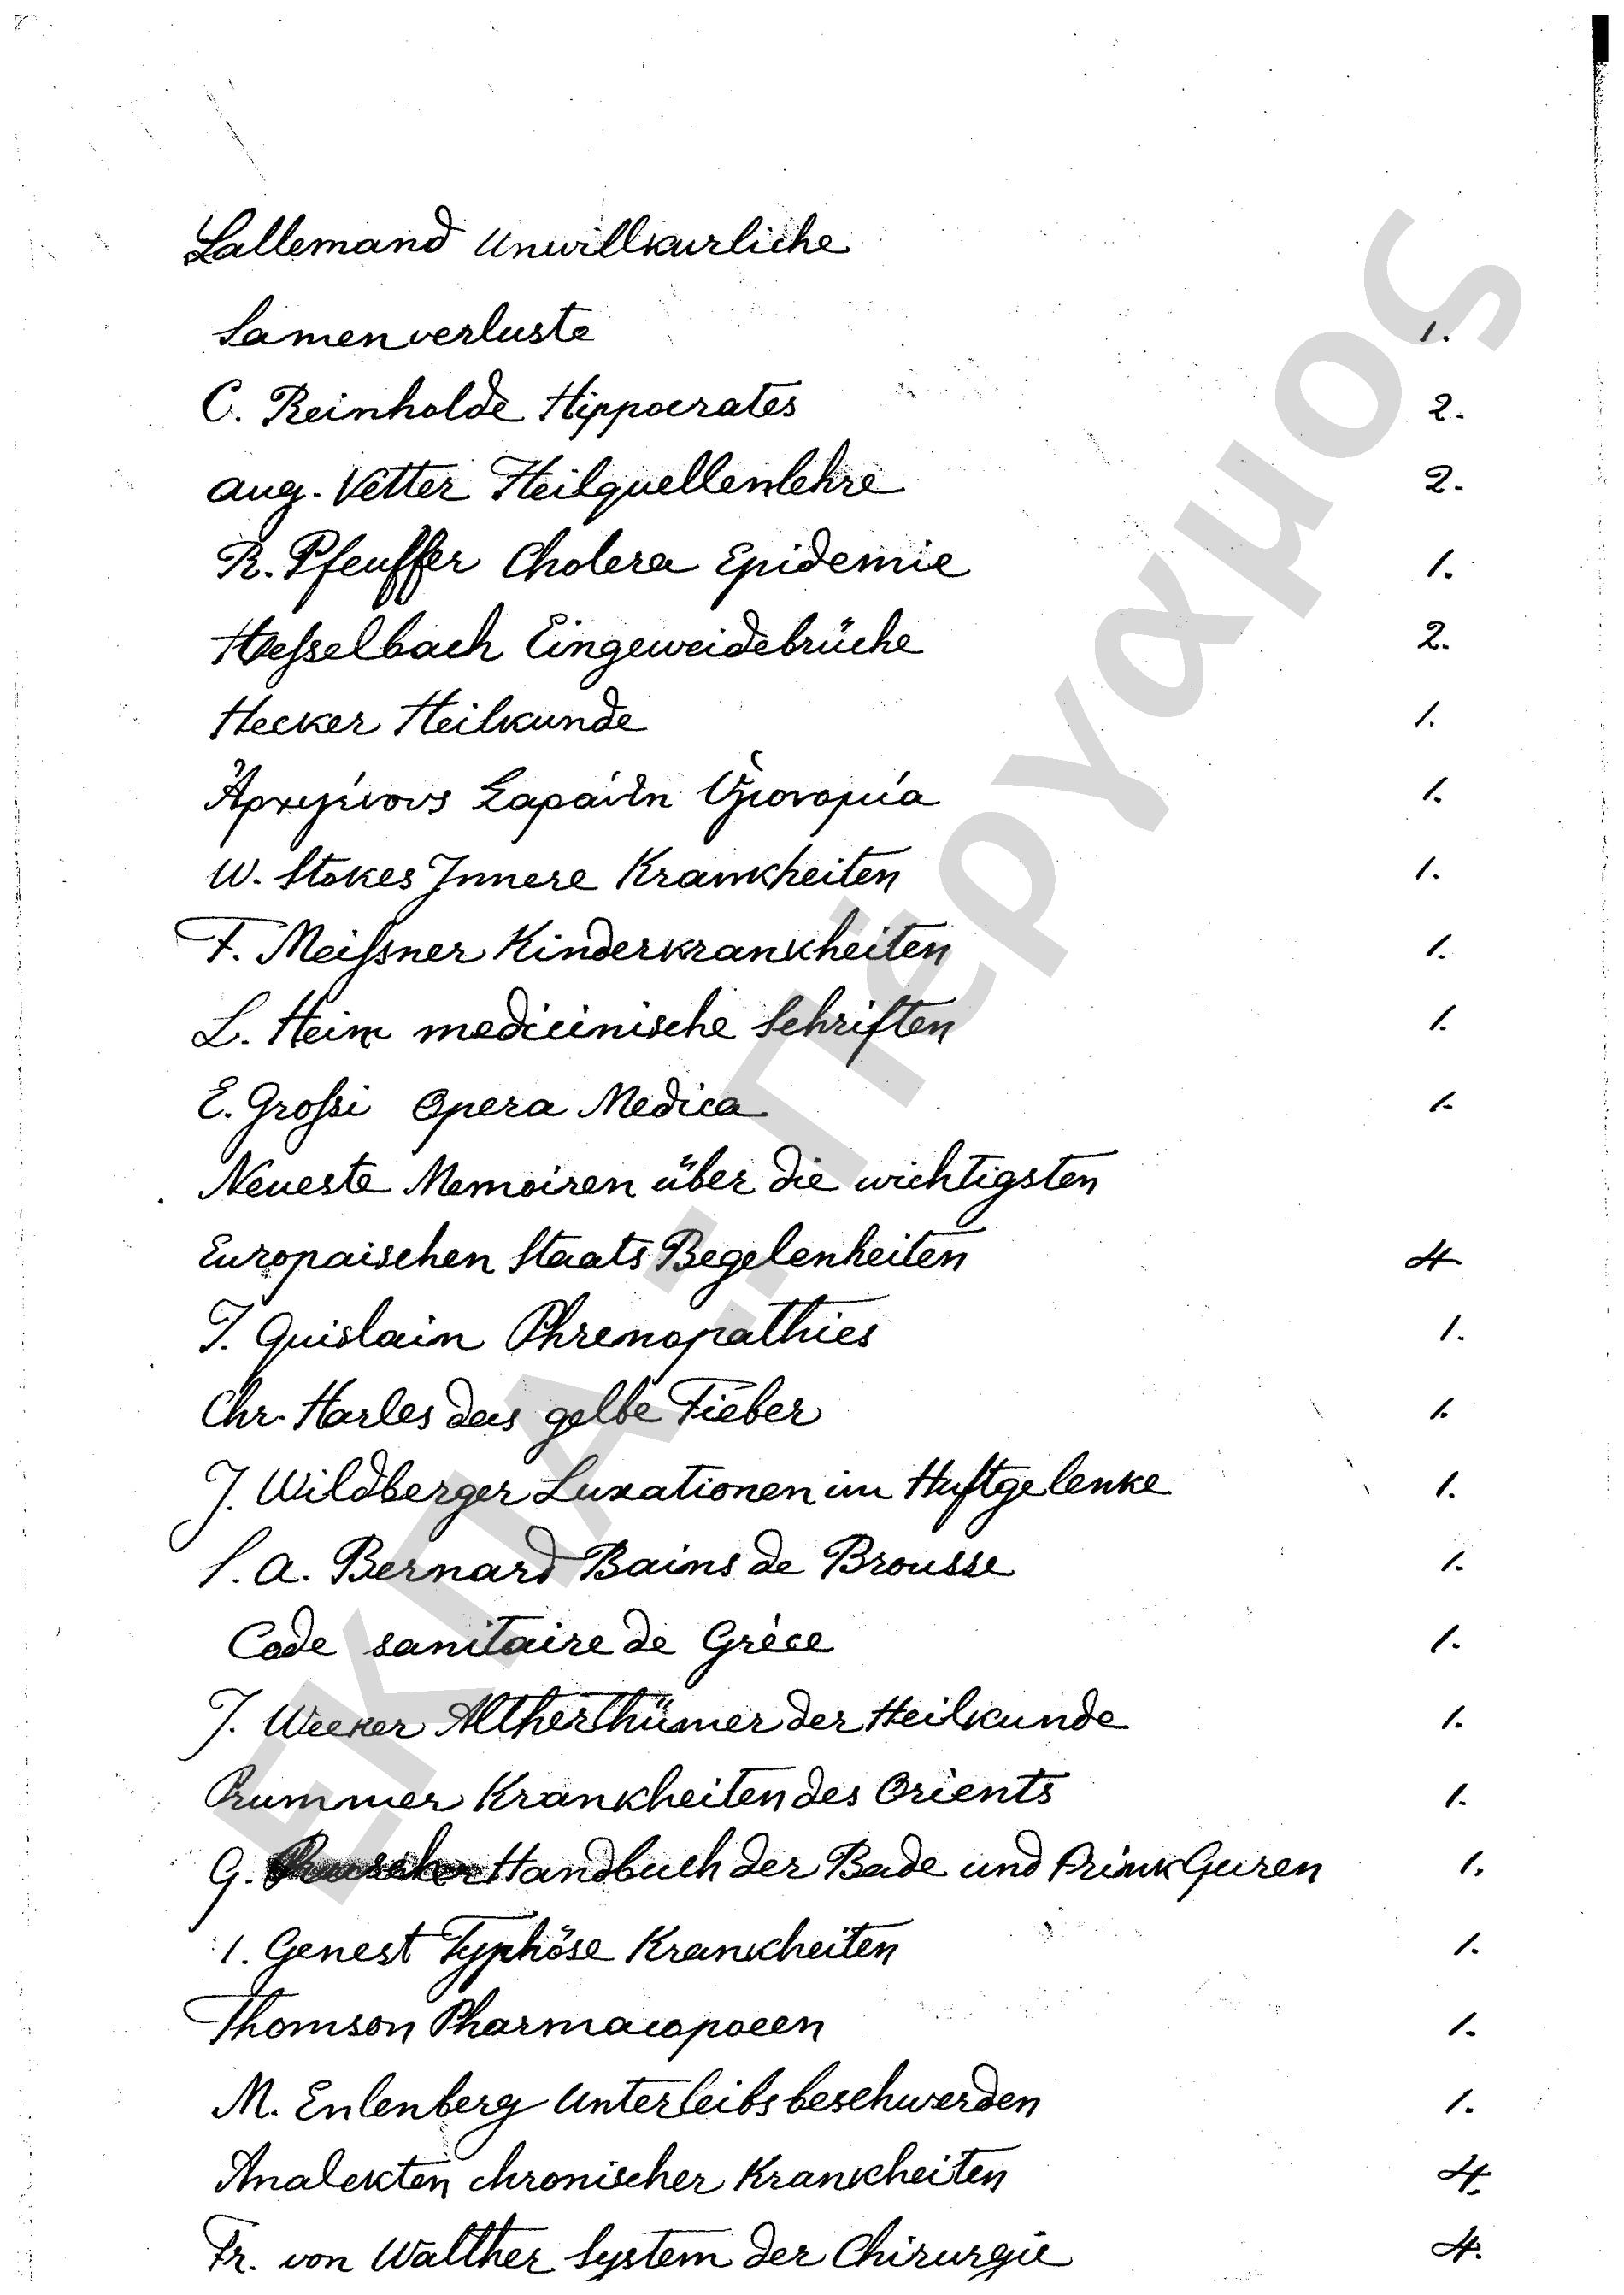 Lallemand Unwillkurliche
Samenverluste 1.
C. Reinholde Hippocrates 2.
Aug. Vetter Heilquellenlehre 2.
R. Pfeuffer Cholera Epidemie 1.
Hesselbach Eingeweidebrüche 2.
Hecker Heilkunde 1.
Ἀρχιγένους Σαράντη Ὑγιονομία 1.
W. Stokes Innere Krankheiten 1.
F. Meissner Kinderkrankheiten 1.
L. Heim medicinische Schriften 1.
E. Grossi Opera Medica 1.
Neueste Memoiren über die wichtigsten
Europaischen Staats Begelenheiten 4
J. Guislain Phrenopathies 1.
Chr. Harles das gelbe Fieber 1.
J. Wildberger Luxationen im Huftgelenke 1.
S. A. Bernard Bains de Brousse 1.
Code sanitaire de Grèce 1.
J. Wecker Altherthümer der Heilkunde 1.
Prummer Krankheiten des Orients 1.
G. Handbuch der Bade und Prink Guren 1.
1. Genest Typhöse Krankheiten 1.
Thomson Pharmacopoeen 1.
M. Enlenberg Unterleibsbeschwerden 1.
Analekten chronischer Krankheiten 4.
Fr. von Walther System der Chirurgie 4.
ΕΚΠΑ-Πέργαμος